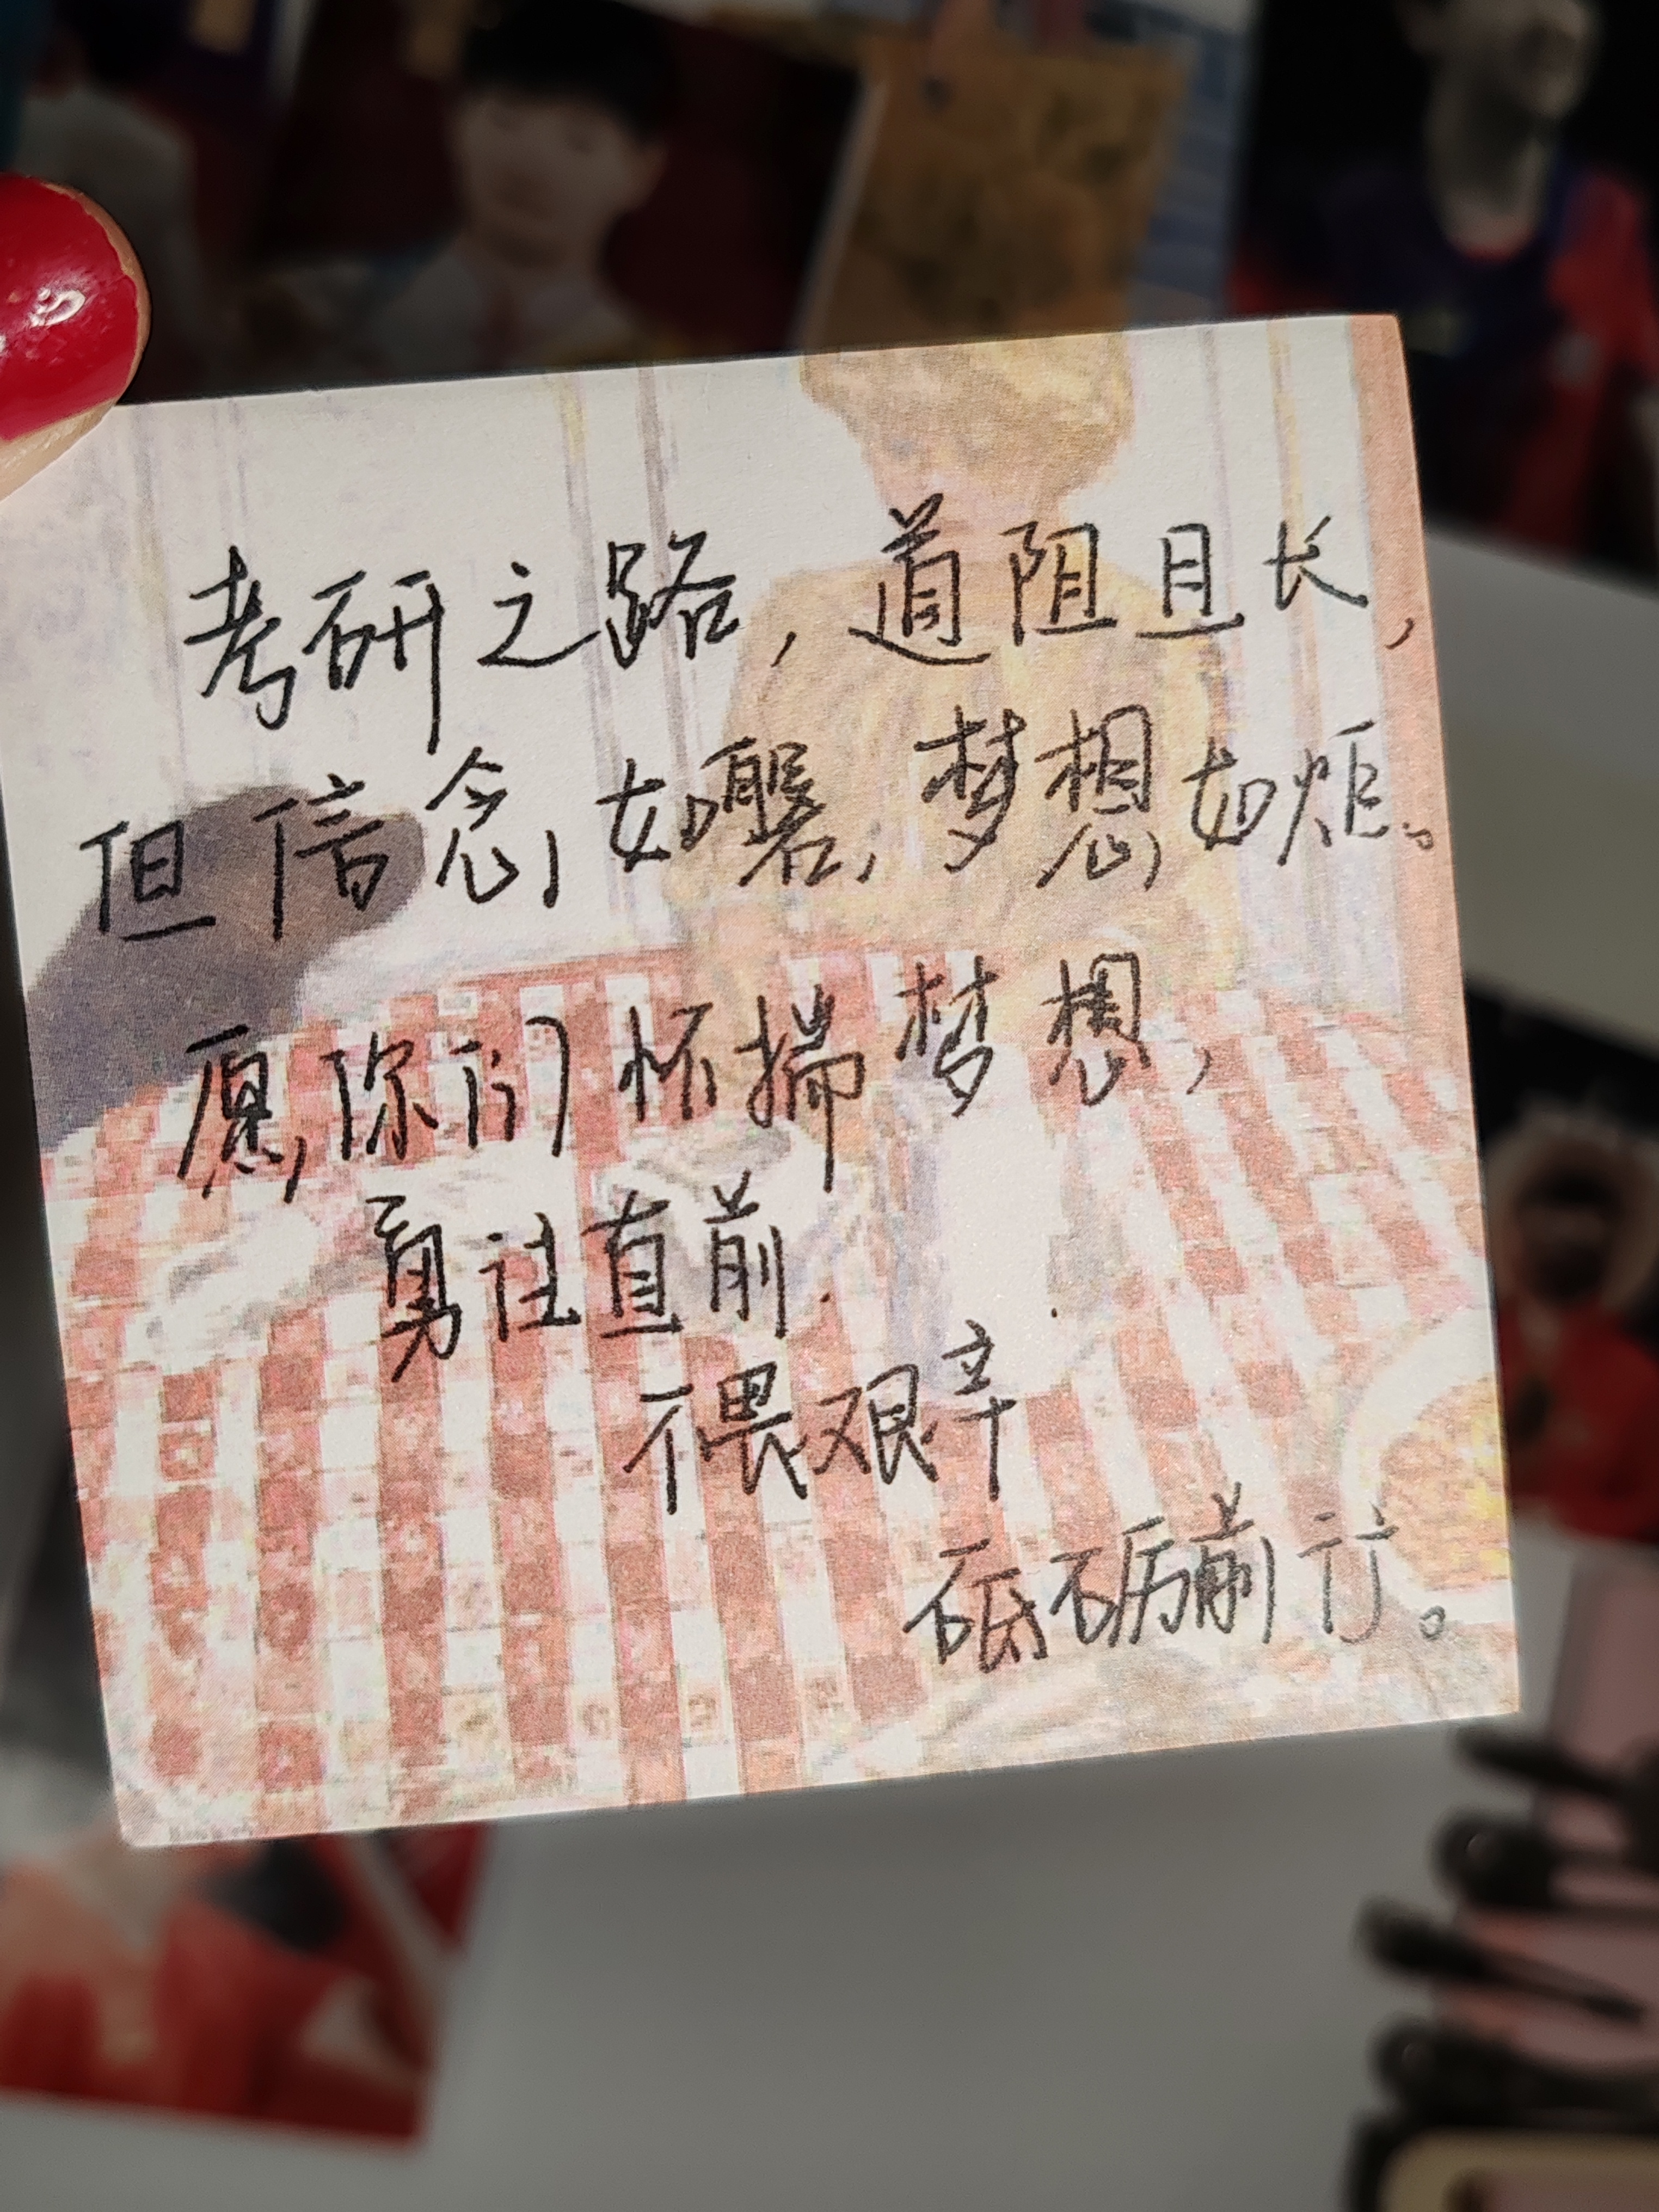 考研之路，道阻且长，
但信念如磐，梦想如炬。
愿你们怀揣梦想，
勇往直前.
不畏艰辛
砥砺前行。